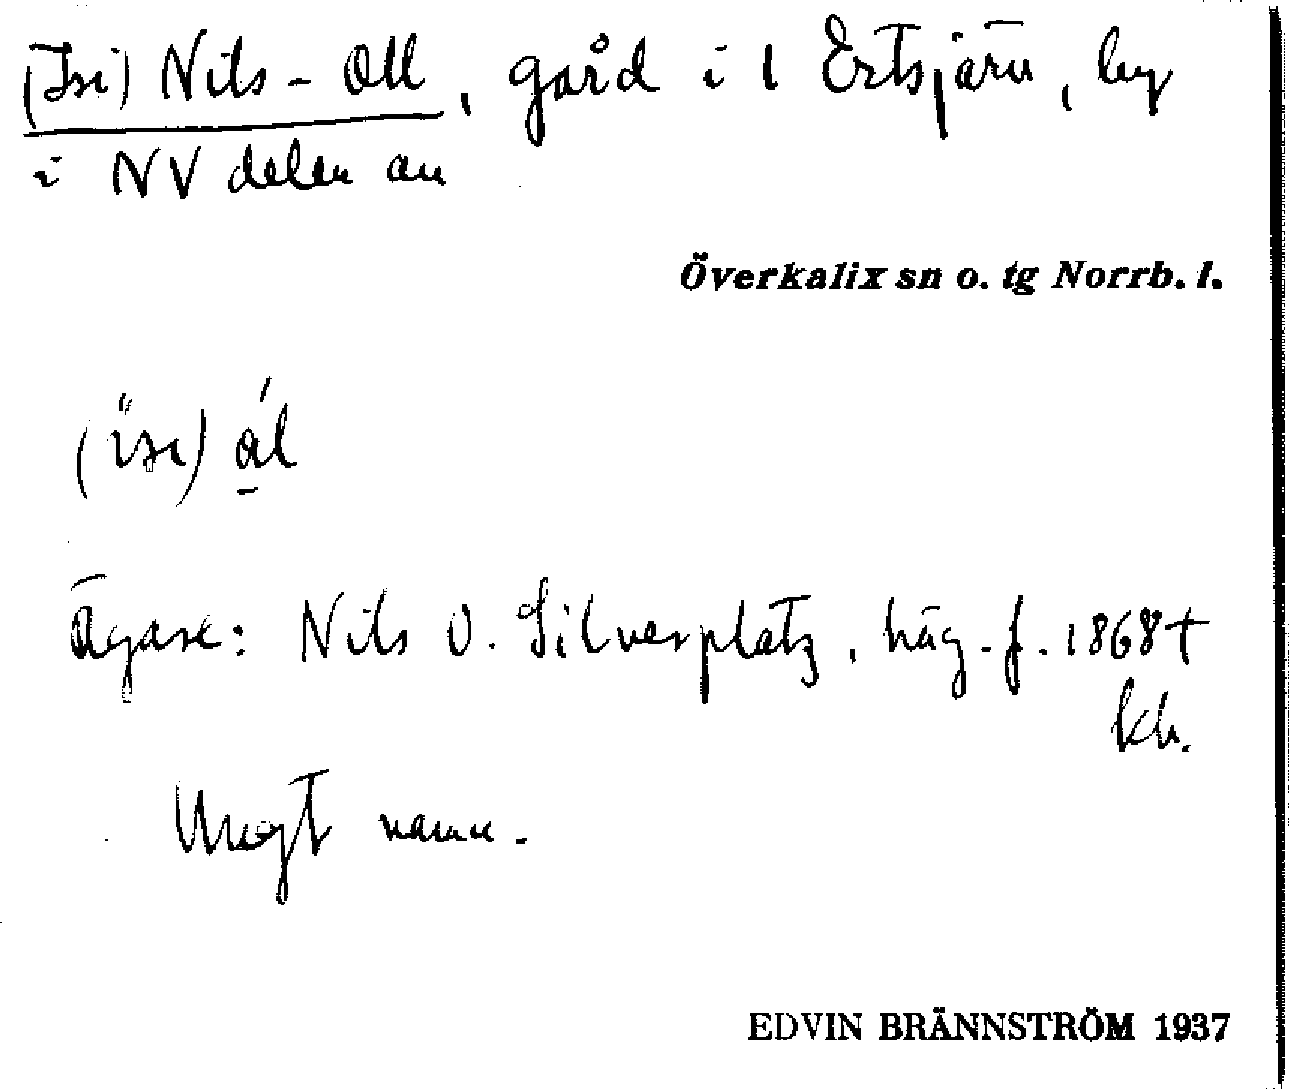 (Isi) Nils-Oll, gård i 1 Ertsjärv, by
i NV delen av
Överkalix sn o. tg Norrb. l.
(ïsi) ál
Ägare: Nils O. Silverplatz, häg. f. 1868 +
kh.
Ungt namn.
EDVIN BRÄNNSTRÖM 1937